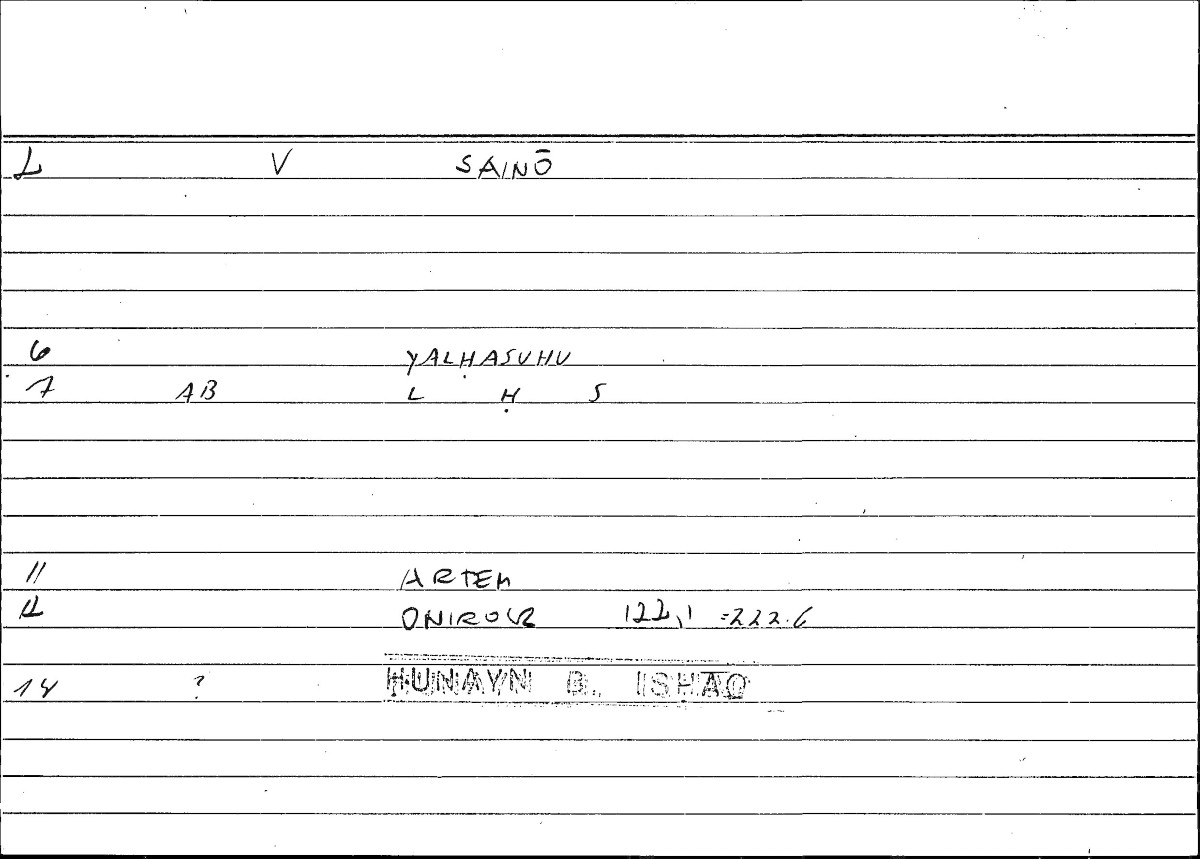 1 V SAINŌ
6 YALḤASUHU
7 AB L Ḥ S
11 ARTEM
12 ONIROCR 122,1 =222.6
14 ? ḤUNAYN B. ISḤĀQ